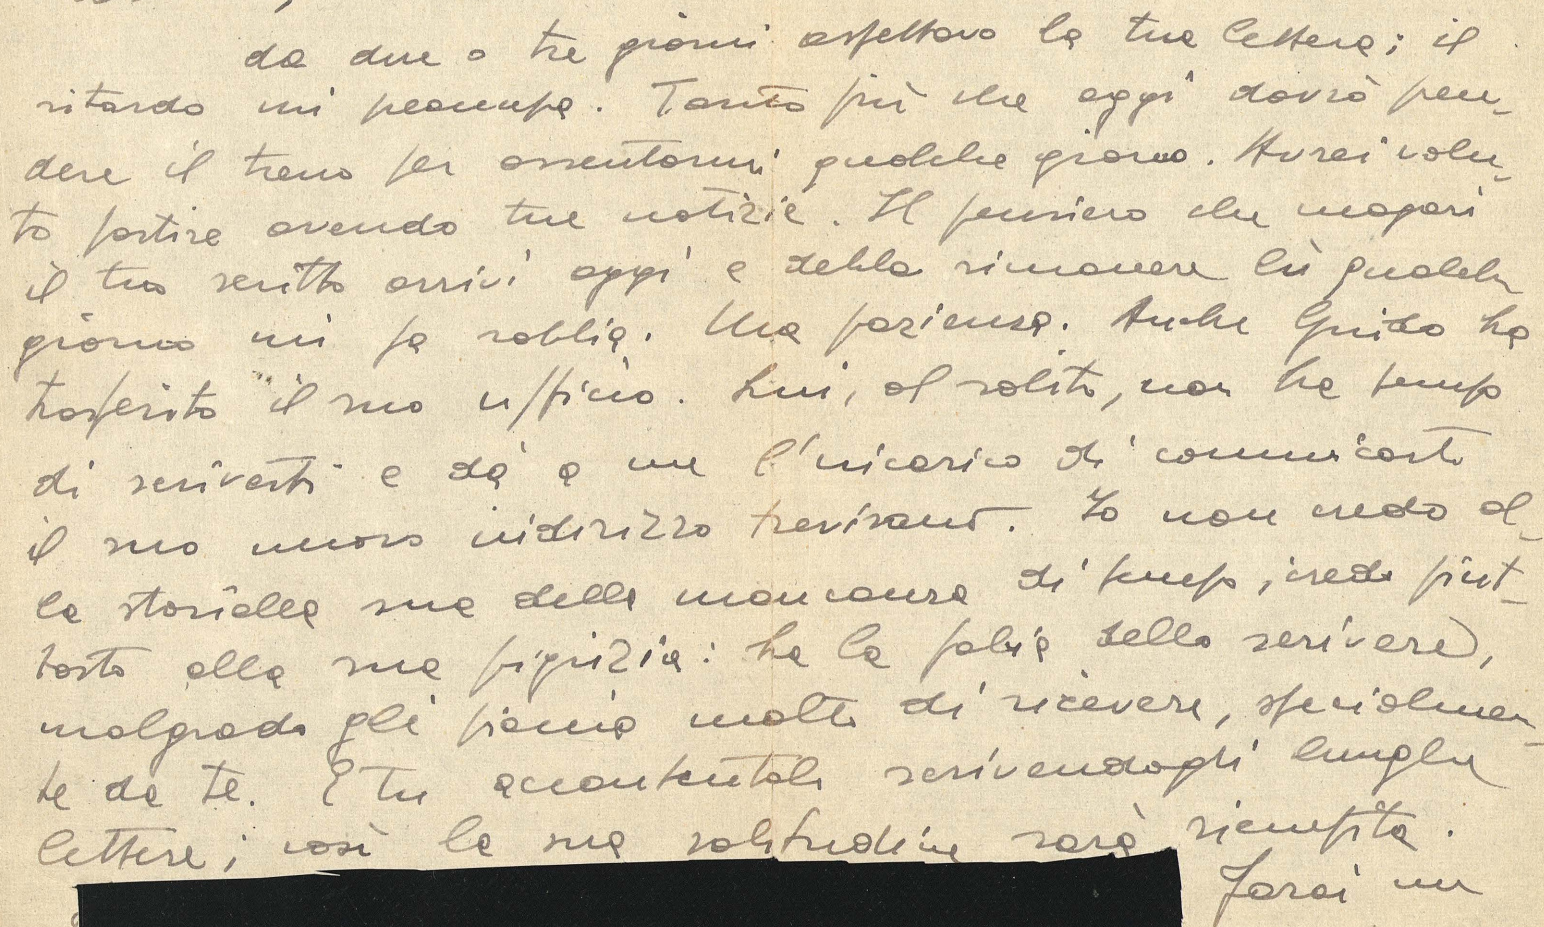 da due o tre giorni aspettavo la tua lettera; il
ritardo mi preoccupa. Tanto più che oggi dovrò pren-
dere il treno per assentarmi qualche giorno. Avrei volu-
to partire avendo tue notizie. Il pensiero che magari
il tuo scritto arrivi oggi e debba rimanere lì qualche
giorno mi fa rabbia. Una pazienza. Anche Guido ha
trasferito il suo ufficio. Lui, al solito, non ha tempo
di scriverti e dà a me l'incarico di comunicarti
il suo nuovo indirizzo trevisano. Io non credo al-
la storiella sua della mancanza di tempo, credo piut-
tosto alla sua pigrizia: ha la fobia dello scrivere,
malgrado gli piaccia molto di ricevere, specialmen-
te da te. E tu accontentalo scrivendogli lunghe
lettere; così la sua solitudine sarà riempita.
Farai un